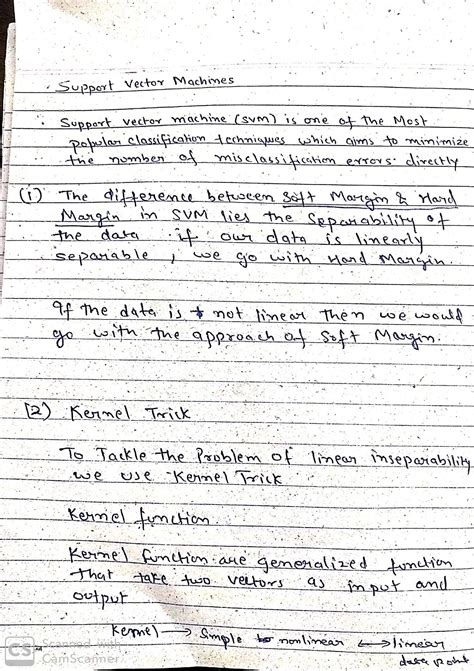 Support Vector Machines
Support vector machine (SVM) is one of the Most
popular classification techniques which aims to minimize
the number of misclassification errors directly
(1) The difference between Soft Margin & Hard
Margin in SVM lies the Separability of
the data. if our data is linearly
separable, we go with Hard Margin.
If the data is not linear then we would
go with the approach of Soft Margin.
(2) Kernel Trick
To Tackle the Problem of linear inseparability
we use Kernel Trick
Kernel function
Kernel function are generalized function
that take two vectors as input and
output
Kernel → Simple to nonlinear ↔ linear
data point
CS Scanned with
CamScanner